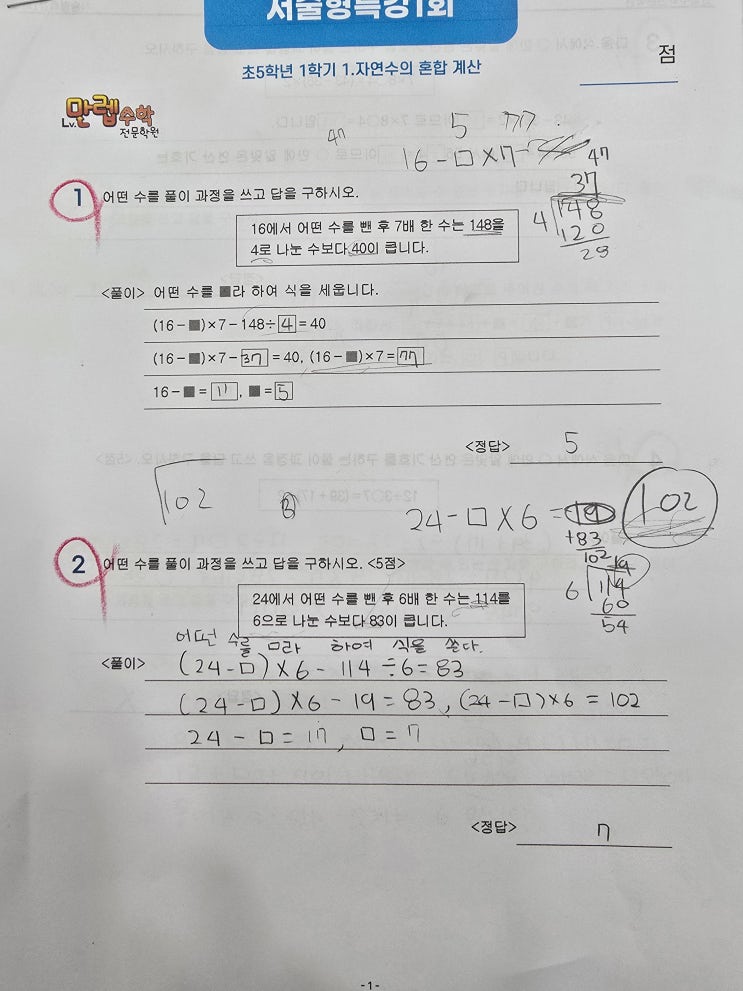 서술형특강1회
초5학년 1학기 1.자연수의 혼합 계산
점
Lv. 만렙수학
전문학원
47
5 77
16-□×7=
47
37
4 148
120
28
1 어떤 수를 풀이 과정을 쓰고 답을 구하시오.
16에서 어떤 수를 뺀 후 7배 한 수는 148을
4로 나눈 수보다 40이 큽니다.
<풀이> 어떤 수를 ■라 하여 식을 세웁니다.
(16-■)×7-148÷4=40
(16-■)×7-37=40, (16-■)×7=77
16-■=11, ■=5
<정답> 5
102
24-□×6=19
102
+83
102
19
6 114
60
54
2 어떤 수를 풀이 과정을 쓰고 답을 구하시오. <5점>
24에서 어떤 수를 뺀 후 6배 한 수는 114를
6으로 나눈 수보다 83이 큽니다.
어떤 수를 □라 하여 식을 쓴다.
<풀이> (24-□)×6-114÷6=83
(24-□)×6-19=83, (24-□)×6=102
24-□=17, □=7
<정답> 7
-1-